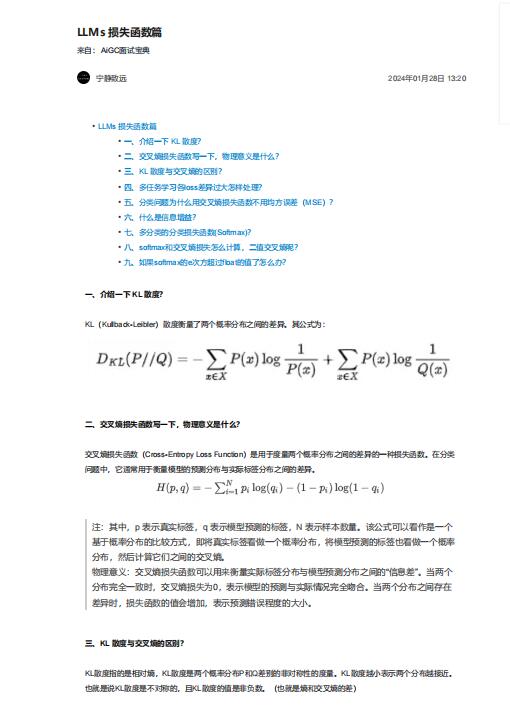 LLMs 损失函数篇
来自： AiGC面试宝典
宁静致远 2024年01月28日 13:20
• LLMs 损失函数篇
• 一、介绍一下 KL 散度?
• 二、交叉熵损失函数写一下，物理意义是什么?
• 三、KL 散度与交叉熵的区别?
• 四、多任务学习各loss差异过大怎样处理?
• 五、分类问题为什么用交叉熵损失函数不用均方误差（MSE）?
• 六、什么是信息增益?
• 七、多分类的分类损失函数(Softmax)?
• 八、softmax和交叉熵损失怎么计算，二值交叉熵呢?
• 九、如果softmax的e次方超过float的值了怎么办?
一、介绍一下 KL 散度?
KL（Kullback-Leibler）散度衡量了两个概率分布之间的差异。其公式为：
D_{KL}(P//Q) = -∑_{x∈X} P(x) log 1/P(x) + ∑_{x∈X} P(x) log 1/Q(x)
二、交叉熵损失函数写一下，物理意义是什么?
交叉熵损失函数（Cross-Entropy Loss Function）是用于度量两个概率分布之间的差异的一种损失函数。在分类
问题中，它通常用于衡量模型的预测分布与实际标签分布之间的差异。
H(p, q) = -∑_{i=1}^{N} p_i log(q_i) - (1 - p_i) log(1 - q_i)
注：其中，p 表示真实标签，q 表示模型预测的标签，N 表示样本数量。该公式可以看作是一个
基于概率分布的比较方式，即将真实标签看做一个概率分布，将模型预测的标签也看做一个概率
分布，然后计算它们之间的交叉熵。
物理意义：交叉熵损失函数可以用来衡量实际标签分布与模型预测分布之间的“信息差”。当两个
分布完全一致时，交叉熵损失为0，表示模型的预测与实际情况完全吻合。当两个分布之间存在
差异时，损失函数的值会增加，表示预测错误程度的大小。
三、KL 散度与交叉熵的区别?
KL散度指的是相对熵，KL散度是两个概率分布P和Q差别的非对称性的度量。KL散度越小表示两个分布越接近。
也就是说KL散度是不对称的，且KL散度的值是非负数。（也就是熵和交叉熵的差）